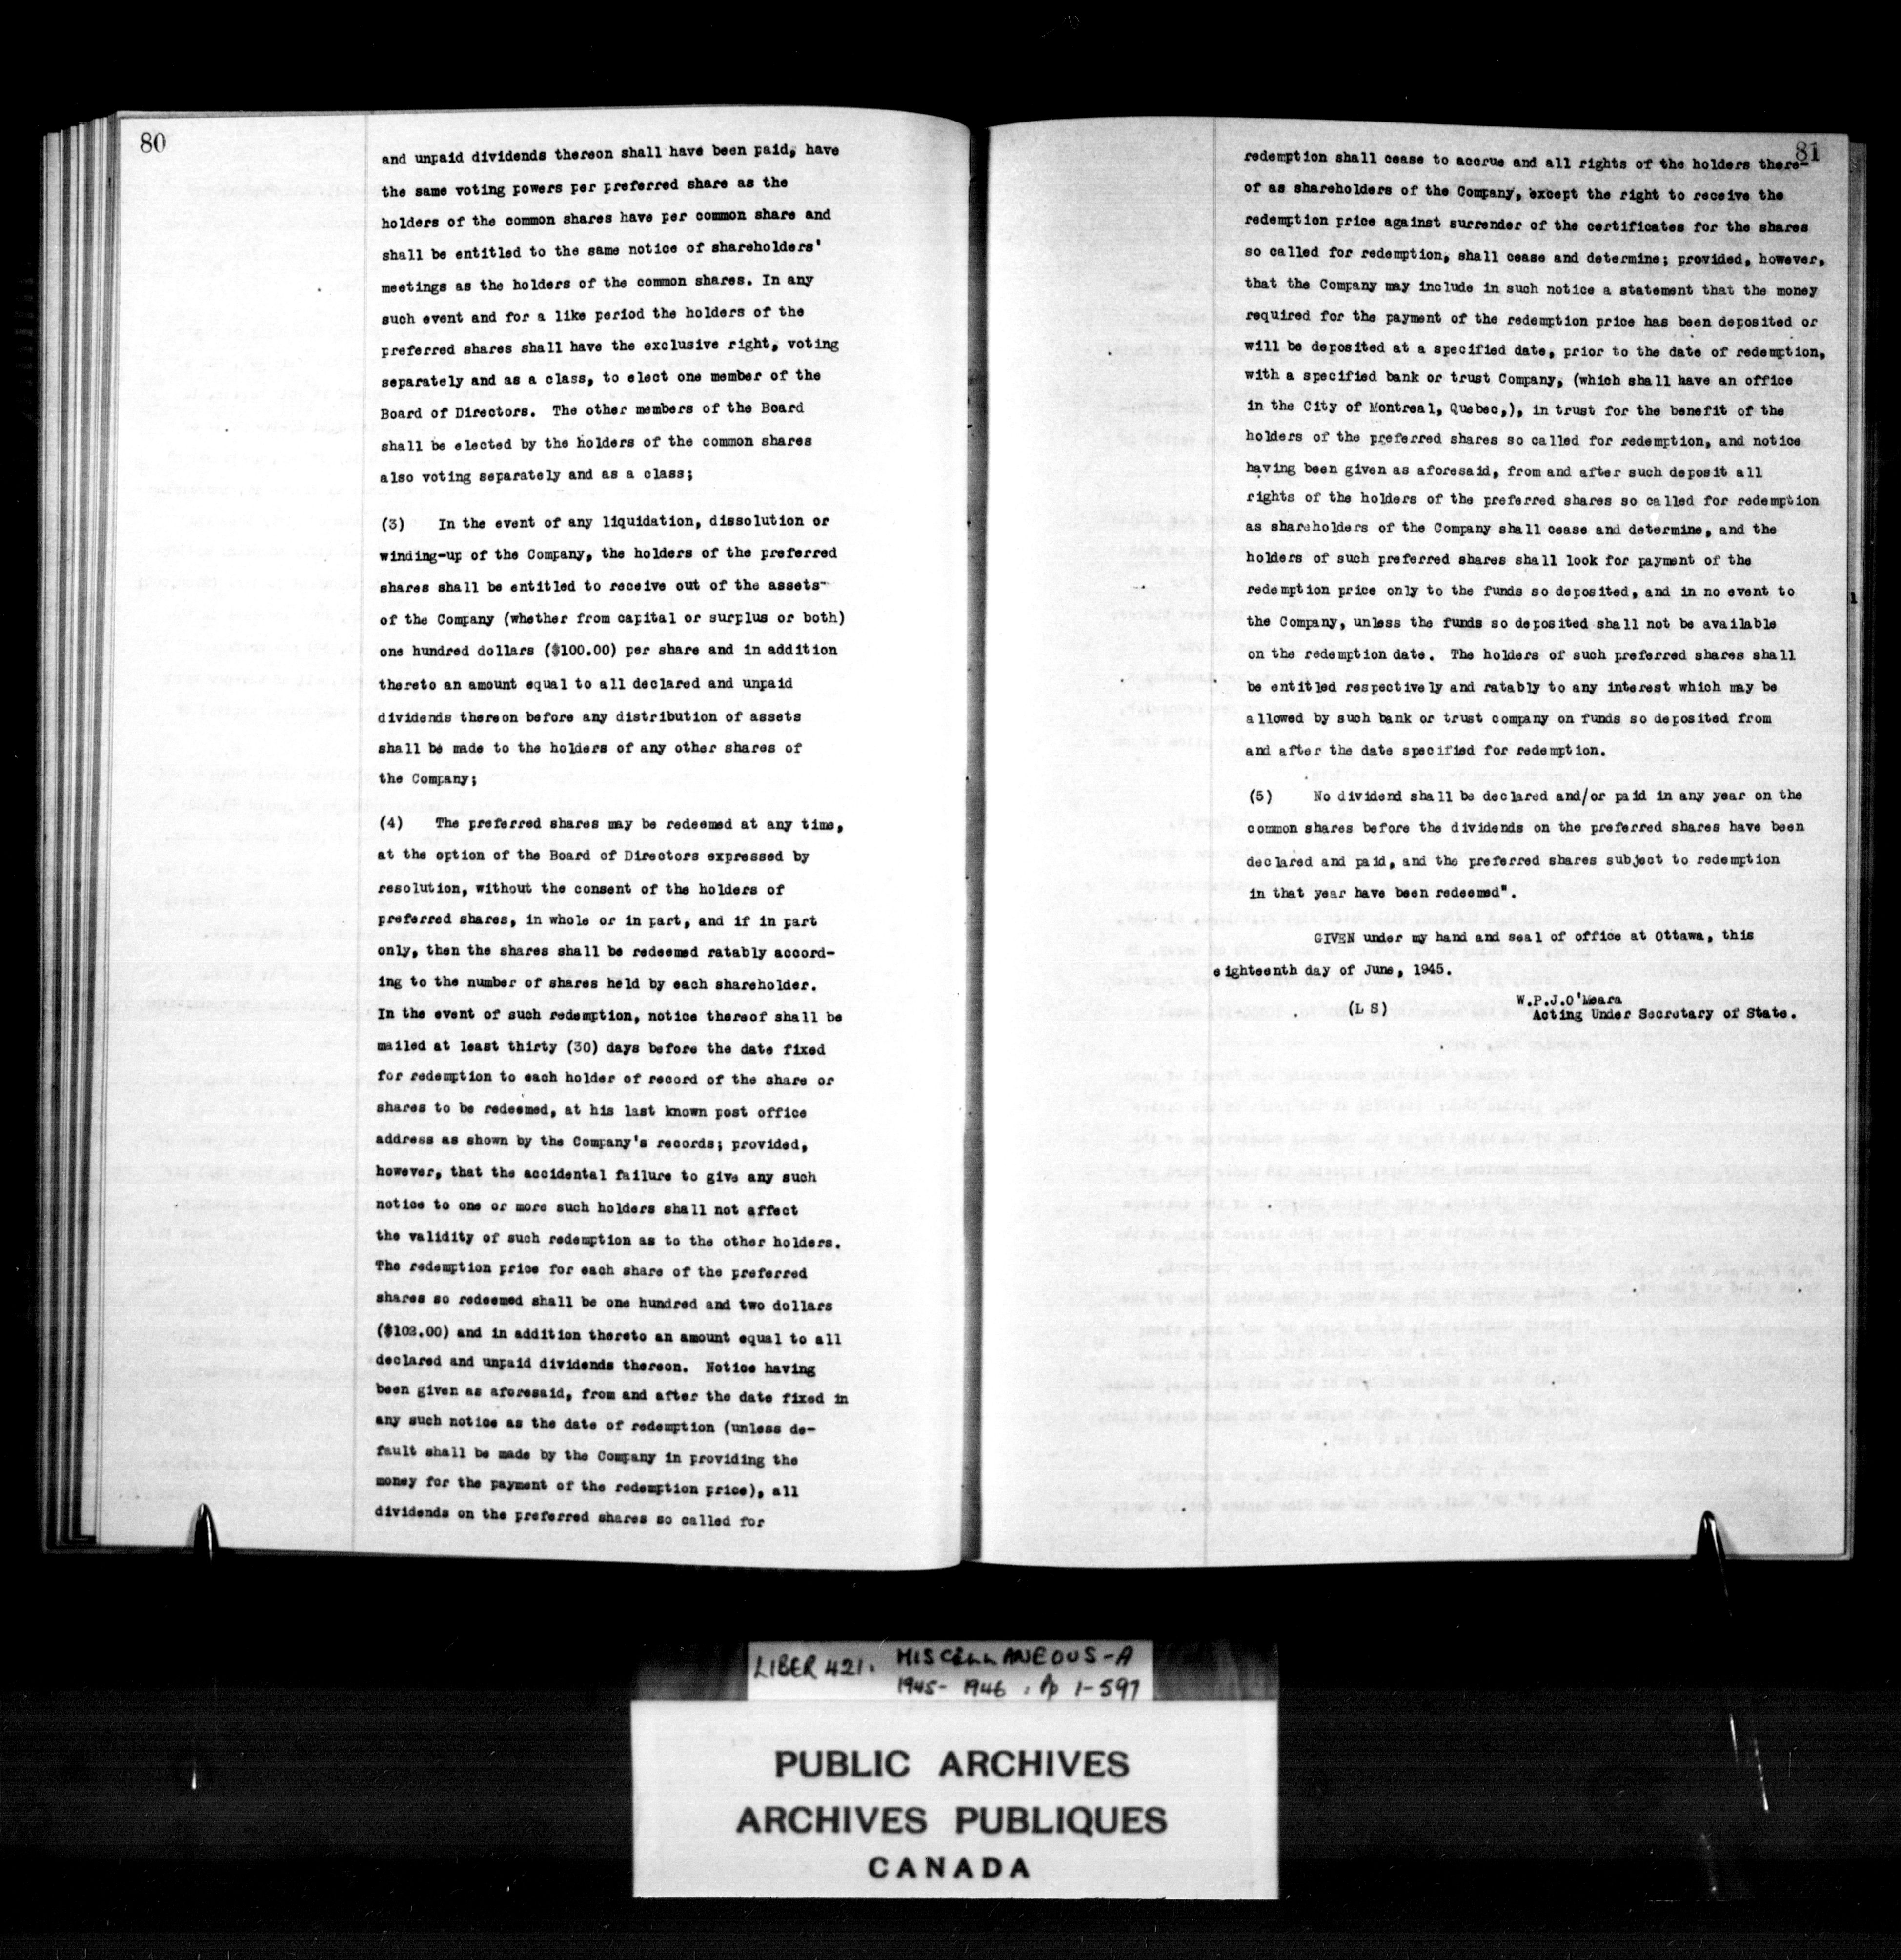 80
and unpaid dividends thereon shall have been paid, have
the same voting powers per preferred share as the
holders of the common shares have per common share and
shall be entitled to the same notice of shareholders'
meetings as the holders of the common shares. In any
such event and for a like period the holders of the
preferred shares shall have the exclusive right, voting
separately and as a class, to elect one member of the
Board of Directors. The other members of the Board
shall be elected by the holders of the common shares
also voting separately and as a class;
(3) In the event of any liquidation, dissolution or
winding-up of the Company, the holders of the preferred
shares shall be entitled to receive out of the assets
of the Company (whether from capital or surplus or both)
one hundred dollars ($100.00) per share and in addition
thereto an amount equal to all declared and unpaid
dividends thereon before any distribution of assets
shall be made to the holders of any other shares of
the Company;
(4) The preferred shares may be redeemed at any time,
at the option of the Board of Directors expressed by
resolution, without the consent of the holders of
preferred shares, in whole or in part, and if in part
only, then the shares shall be redeemed ratably accord-
ing to the number of shares held by each shareholder.
In the event of such redemption, notice thereof shall be
mailed at least thirty (30) days before the date fixed
for redemption to each holder of record of the share or
shares to be redeemed, at his last known post office
address as shown by the Company's records; provided,
however, that the accidental failure to give any such
notice to one or more such holders shall not affect
the validity of such redemption as to the other holders.
The redemption price for each share of the preferred
shares so redeemed shall be one hundred and two dollars
($102.00) and in addition thereto an amount equal to all
declared and unpaid dividends thereon. Notice having
been given as aforesaid, from and after the date fixed in
any such notice as the date of redemption (unless de-
fault shall be made by the Company in providing the
money for the payment of the redemption price), all
dividends on the preferred shares so called for
81
redemption shall cease to accrue and all rights of the holders there-
of as shareholders of the Company, except the right to receive the
redemption price against surrender of the certificates for the shares
so called for redemption, shall cease and determine; provided, however,
that the Company may include in such notice a statement that the money
required for the payment of the redemption price has been deposited or
will be deposited at a specified date, prior to the date of redemption,
with a specified bank or trust Company, (which shall have an office
in the City of Montreal, Quebec,), in trust for the benefit of the
holders of the preferred shares so called for redemption, and notice
having been given as aforesaid, from and after such deposit all
rights of the holders of the preferred shares so called for redemption
as shareholders of the Company shall cease and determine, and the
holders of such preferred shares shall look for payment of the
redemption price only to the funds so deposited, and in no event to
the Company, unless the funds so deposited shall not be available
on the redemption date. The holders of such preferred shares shall
be entitled respectively and ratably to any interest which may be
allowed by such bank or trust company on funds so deposited from
and after the date specified for redemption.
(5) No dividend shall be declared and/or paid in any year on the
common shares before the dividends on the preferred shares have been
declared and paid, and the preferred shares subject to redemption
in that year have been redeemed".
GIVEN under my hand and seal of office at Ottawa, this
eighteenth day of June, 1945.
W.P.J.O'Meara
(L S) Acting Under Secretary of State.
LIBER 421. MISCELLANEOUS-A
1945-1946 : Pp 1-597
PUBLIC ARCHIVES
ARCHIVES PUBLIQUES
CANADA